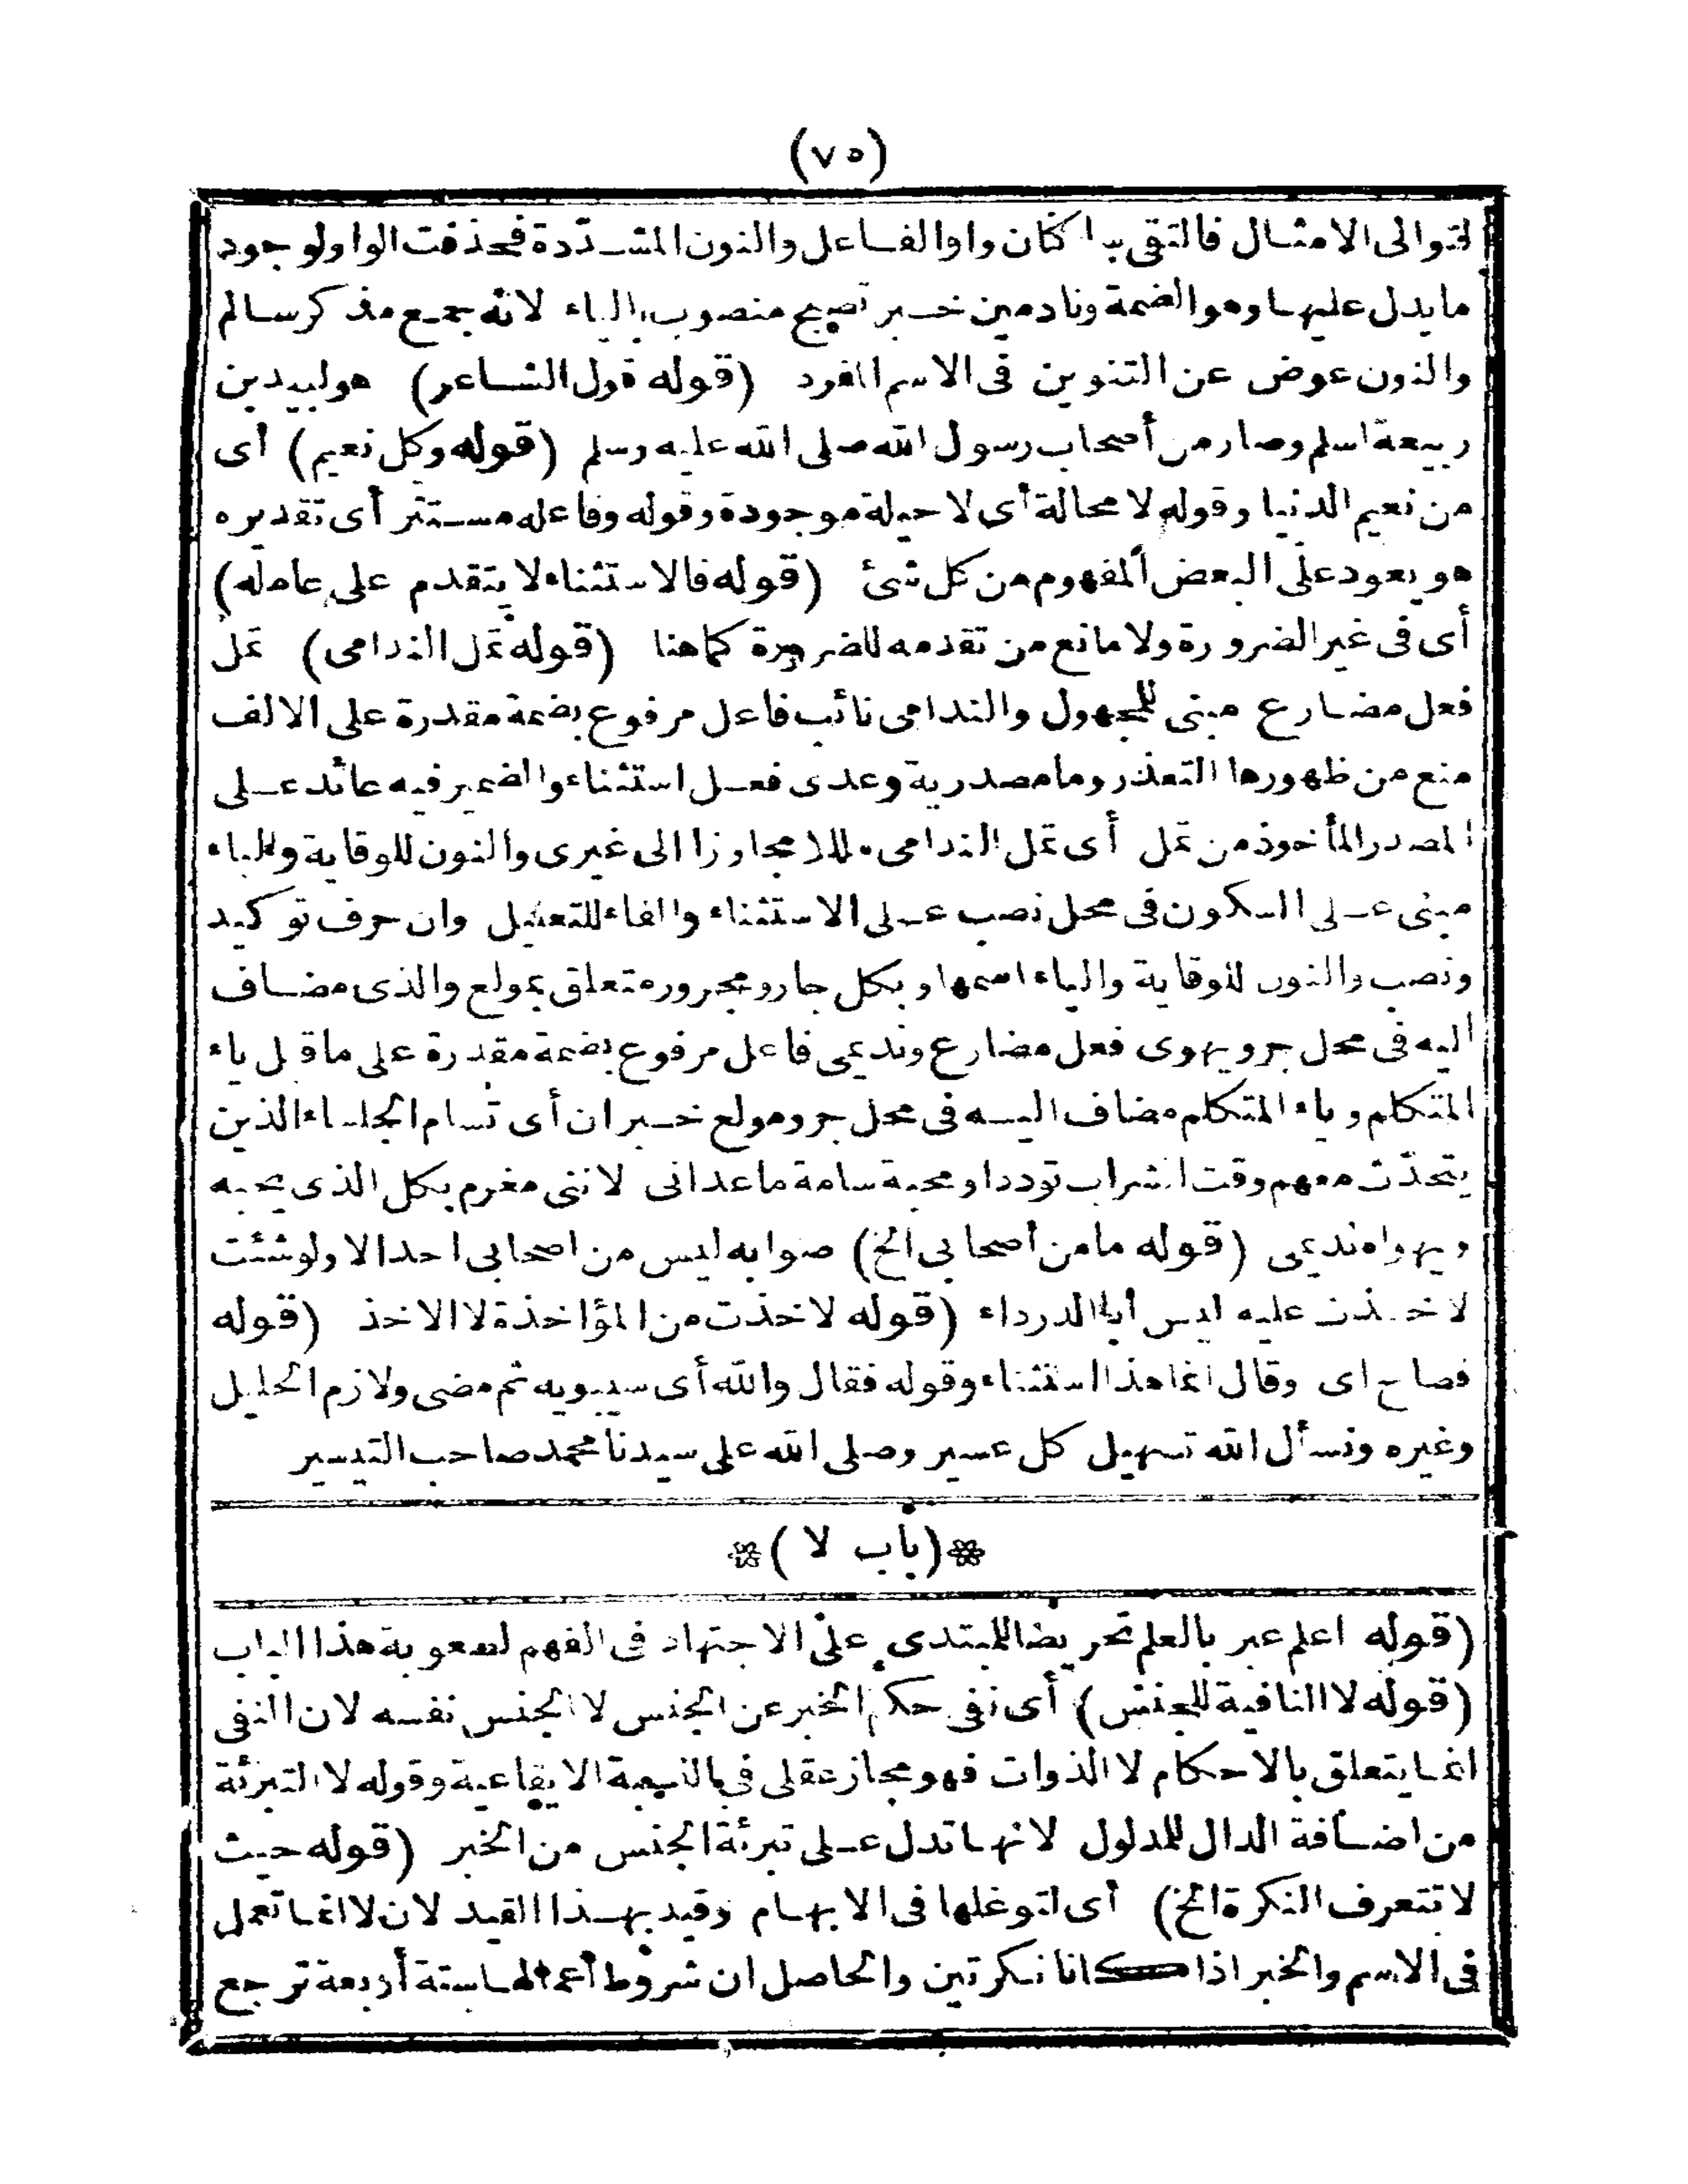 (٧٥)
لتوالى الامثال فالتقى ساكنان واوالفاعل والنون المشددة فحذفت الواو لوجود
مايدل عليها وهو الضمة ونادمين خبر تصبح منصوب بالياء لانه جمع مذكر سالم
والنون عوض عن التنوين فى الاسم المفرد (قوله قول الشاعر) هو لبيد بن
ربيعة اسلم وصار من أصحاب رسول الله صلى الله عليه وسلم (قوله وكل نعيم) أى
من نعيم الدنيا وقوله لا محالة أى لا حيلة موجودة وقوله وفاعله مستتر أى تقديره
هو يعود على البعض المفهوم من كل شئ (قوله فالاستثناء لا يتقدم على عامله)
أى فى غير الضرورة ولا مانع من تقدمه للضرورة كما هنا (قوله تمل الندامى) تمل
فعل مضارع مبنى للمجهول والندامى نائب فاعل مرفوع بضمة مقدرة على الالف
منع من ظهورها التعذر وما مصدرية وعدى فعل استثناء والضمير فيه عائد على
المصدر المأخوذ من تمل أى تمل الندامى مللا مجاوزا الى غيرى والنون للوقاية والياء
مبنى على السكون فى محل نصب على الاستثناء والفاء للتعليل وان حرف توكيد
ونصب والنون للوقاية والياء اسمها وبكل جار ومجرور متعلق بمولع والذى مضاف
اليه فى محل جر ويهوى فعل مضارع ونديمى فاعل مرفوع بضمة مقدرة على ما قبل ياء
المتكلم وياء المتكلم مضاف اليه فى محل جر ومولع خبر ان أى تسام الجلساء الذين
يتحدّث معهم وقت الشراب توددا ومحبة سامة ما عدانى لاننى مغرم بكل الذى يحبه
ويهواه نديمى (قوله ما من أصحابى الخ) صوابه ليس من اصحابى احد الا ولو شئت
لاخذت عليه ليس أبا الدرداء (قوله لاخذت من المؤاخذة لا الاخذ (قوله
فصاح اى وقال انما هذا استثناء وقوله فقال والله أى سيبويه ثم مضى ولازم الخليل
وغيره ونسأل الله تسهيل كل عسير وصلى الله على سيدنا محمد صاحب التيسير
*(باب لا)*
(قوله اعلم عبر بالعلم تحريضا للمبتدى على الاجتهاد فى الفهم لصعوبة هذا الباب
(قوله لا النافية للجنس) أى نفى حكم الخبر عن الجنس لا الجنس نفسه لان النفى
انما يتعلق بالاحكام لا الذوات فهو مجاز عقلى فى النسبة الايقاعية وقوله لا التبرئة
من اضافة الدال للمدلول لانها تدل على تبرئة الجنس من الخبر (قوله حيث
لا تتعرف النكرة الخ) أى لتوغلها فى الابهام وقيد بهذا القيد لان لا انما تعمل
فى الاسم والخبر اذا كانا نكرتين والحاصل ان شروط أعمالها ستة أربعة ترجع